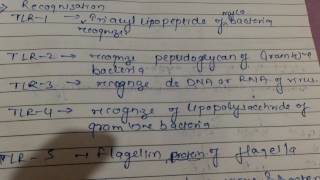 Recognisation
TLR-1 → Triacyl lipopeptide of myco bacteria
recognize
TLR-2 → recognize pepudoglycan of Gram +ve
bacteria
TLR-3 → recognize ds DNA or RNA of virus.
TLR-4 → recognize of lipopolysacchride of
gram -ve bacteria
TLR-5 → Flagellin protein of flagella